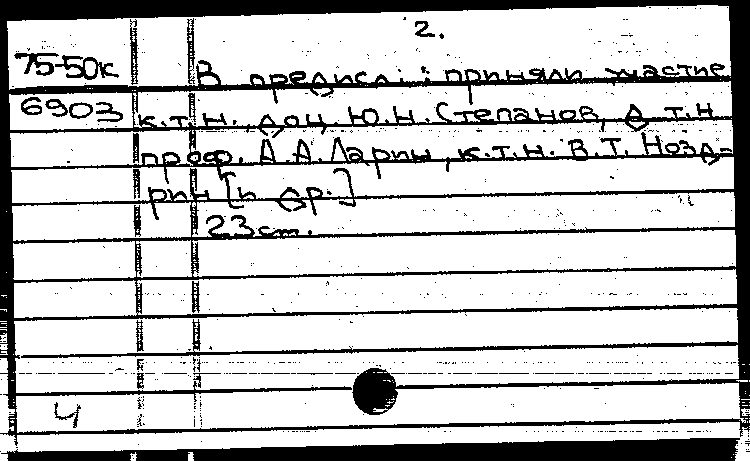 2.
75-50к
В предисл.: приняли участие
6903 к.т.н., доц. Ю.Н.Степанов, д.т.н
проф. А.А.Ларин, к.т.н. В.Т. Нозд-
рин [и др.]
23 cm.
4